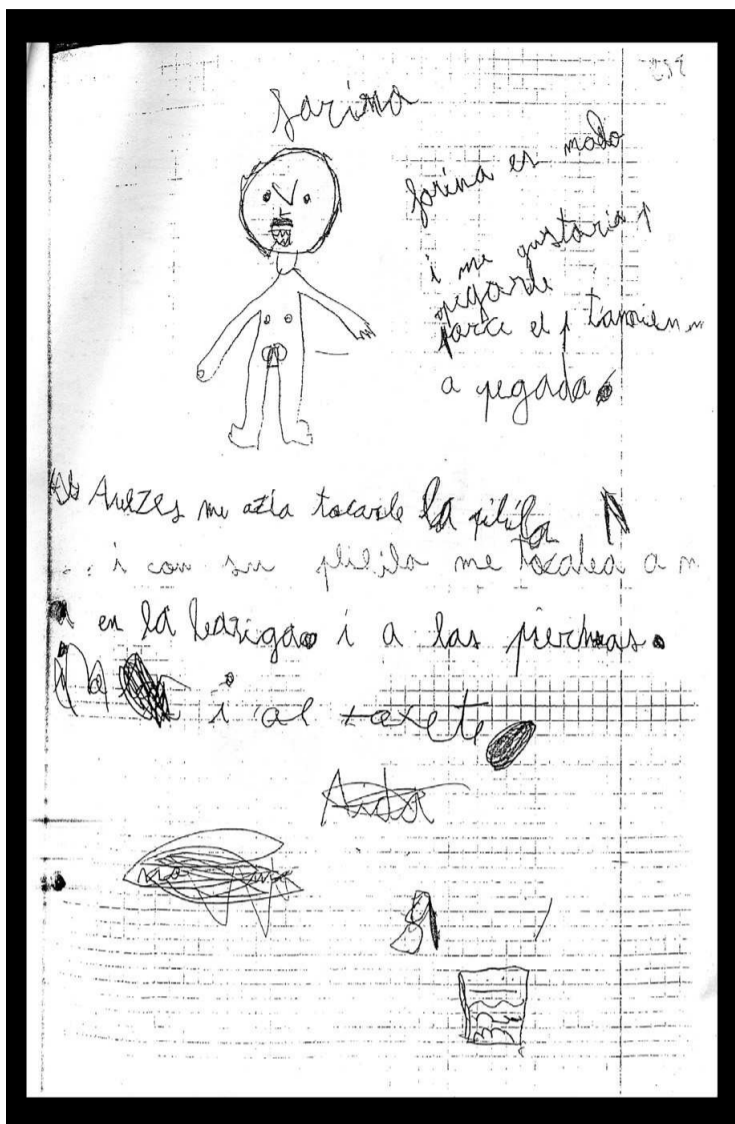 farina
farina es malo
i me gustaria
pegarle
parce el tamvien
a pegada
Avezes me azia tocarle la pilila
i con su plilila me tocaba a m
en la barriga i a las piernas
i al
Aida